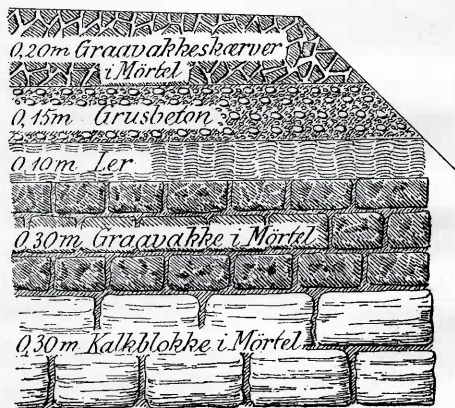 0,20m Graavakkeskærver
i Mörtel
0,15m Grusbeton
0,10m Ler
0,30m Graavakke i Mörtel
0,30m Kalkblokke i Mörtel